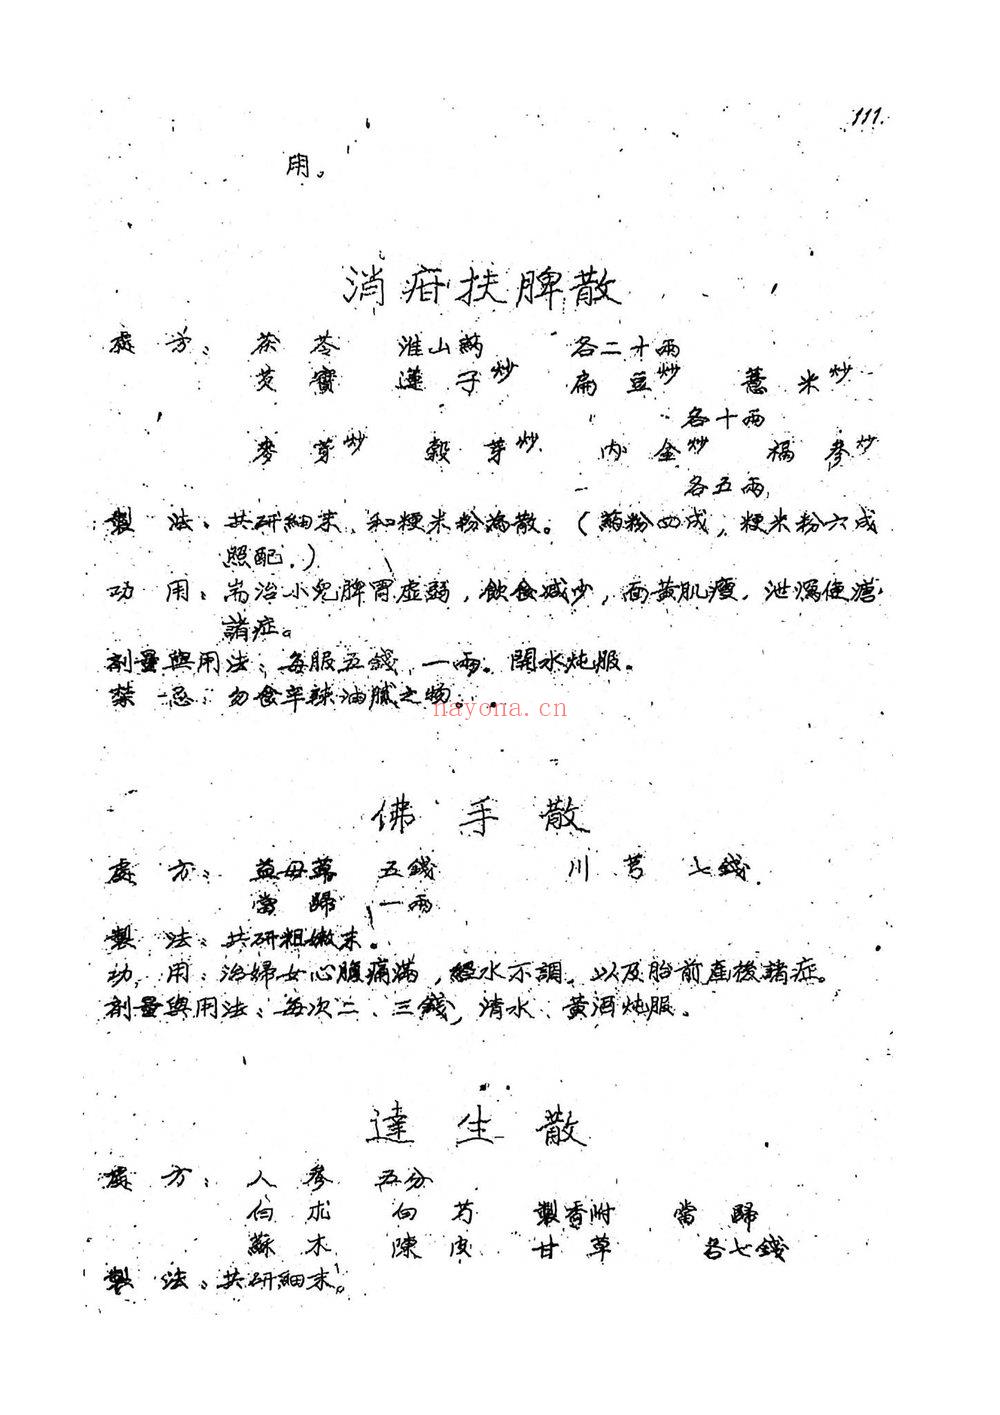 111.
用。
消疳扶脾散
處方：茯苓 淮山药 各二十兩
芡實 蓮子炒 扁豆炒 薏米炒
各十兩
麥芽炒 穀芽炒 内金炒 福參炒
各五兩
製法：共研細末、和粳米粉為散。（药粉四成，粳米粉六成
照配.）
功用：耑治小兒脾胃虛弱，飲食減少，面黃肌瘦，泄瀉便溏
諸症。
劑量與用法：每服五錢、一兩。開水炖服。
禁忌：勿食辛辣油膩之物。
nayona.cn
佛手散
處方：益母草 五錢 川芎 七錢
當歸 一兩
製法：共研粗嫩末。
功用：治婦女心腹痛滿，經水不調，以及胎前產後諸症。
劑量與用法：每次二、三錢，清水、黃酒炖服。
達生散
處方：人參 五分
白朮 白芍 製香附 當歸
蘇木 陳皮 甘草 各七錢
製法：共研細末。